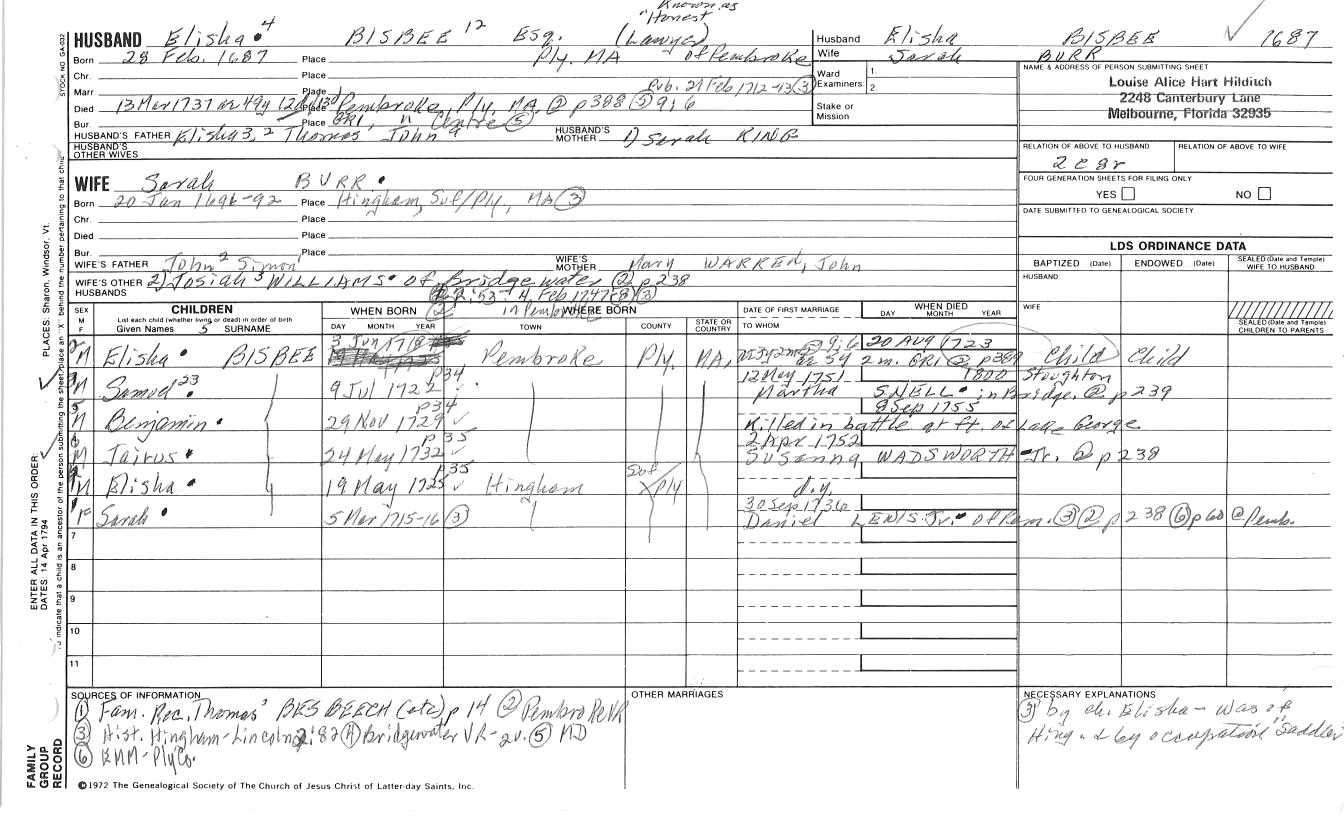 Known as
"Honest
HUSBAND Elisha 4 BISBEE 12 Esq. (Lawyer)
Born 28 Feb. 1687 Place Ply. MA of Pembroke
Chr. Place
Marr Place Pub. 27 Feb 1712-13 (3)
Died 13 Mar 1737 ae 49y Place Pembroke, Ply, MA. (2) p388 (5) 9:6
Bur Place GRI, n Centre (5)
HUSBAND'S FATHER Elisha 3, 2 Thomas' John HUSBAND'S MOTHER 1) Sarah KING
HUSBAND'S OTHER WIVES
Husband Elisha BISBEE 1687
Wife Sarah BURR
Ward Examiners 1.
2.
Stake or Mission
NAME & ADDRESS OF PERSON SUBMITTING SHEET
Louise Alice Hart Hilditch
2248 Canterbury Lane
Melbourne, Florida 32935
RELATION OF ABOVE TO HUSBAND RELATION OF ABOVE TO WIFE
2c8r
FOUR GENERATION SHEETS FOR FILING ONLY
YES NO
DATE SUBMITTED TO GENEALOGICAL SOCIETY
WIFE Sarah BURR
Born 20 Jan 1691-92 Place Hingham, Suf/Ply, MA (3)
Chr. Place
Died Place
Bur. Place
WIFE'S FATHER John 2 Simon' WIFE'S MOTHER Mary WARREN, John
WIFE'S OTHER HUSBANDS 2) Josiah 3 WILLIAMS of Bridgewater (2) p238
4 Feb 1747-8 (3)
in Pembroke
LDS ORDINANCE DATA
BAPTIZED (Date) ENDOWED (Date) SEALED (Date and Temple) WIFE TO HUSBAND
HUSBAND
WIFE
SEALED (Date and Temple) CHILDREN TO PARENTS
SEX M F
CHILDREN
List each child (whether living or dead) in order of birth
Given Names 5 SURNAME
WHEN BORN
DAY MONTH YEAR
WHERE BORN
TOWN COUNTY STATE OR COUNTRY
DATE OF FIRST MARRIAGE
TO WHOM
WHEN DIED
DAY MONTH YEAR
2 M Elisha BISBEE 3 Jun 1718 Pembroke Ply. MA, 9:6 20 AUG 1723
ae 5y 2m. GRI (2) p389 Child Child
M Samuel 23 9 Jul 1722 p34 12 May 1751 1800 Stoughton
Martha SNELL in Bridge. @ p239
5 M Benjamin 29 Nov 1729 p34 8 Sep 1755
Killed in battle at ft. of Lake George
6 M Jairus 24 May 1732 p35 2 Apr 1752
Susanna WADSWORTH Jr. @ p238
M Elisha 19 May 1725 p35 Hingham Suf Ply d.y.
1 F Sarah 5 Mar 1715-16 (3) 30 Sep 1736
Daniel LEWIS Jr. of Pem. (3) (2) p238 (6) p60 @ Pemb.
7
8
9
10
11
SOURCES OF INFORMATION
(1) Fam. Rec. Thomas' BESBEECH (etc) p 14 (2) Pembroke VR
(3) Hist. Hingham-Lincoln 2:82 (4) Bridgewater VR-2v. (5) MD
(6) KMM-Ply Co.
OTHER MARRIAGES
NECESSARY EXPLANATIONS
(3) by ch. Elisha - was of
Hing. & by occupation "Saddler
©1972 The Genealogical Society of The Church of Jesus Christ of Latter-day Saints, Inc.
FAMILY GROUP RECORD
ENTER ALL DATA IN THIS ORDER
DATES: 14 Apr 1794
PLACES: Sharon, Windsor, Vt.
To indicate that a child is an ancestor of the person submitting the sheet, place an "X" behind the number pertaining to that child.
STOCK NO. GA-032